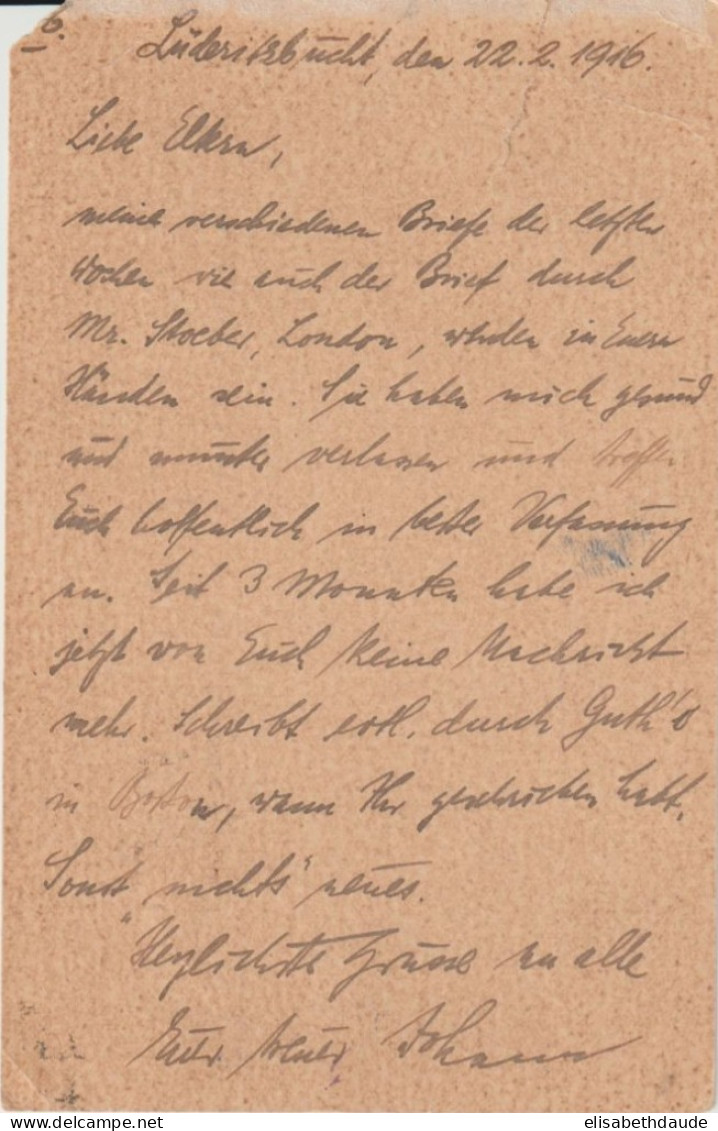 6.
Lüderitzbucht, den 22.2.1916.
Liebe Eltern,
meine verschiedenen Briefe der letzten
Wochen wie auch der Brief durch
Mr. Stoeber, London, werden in Euern
Händen sein. Sie haben mich gesund
und munter verlassen und treffen
Euch hoffentlich in bester Verfassung
an. Seit 3 Monaten habe ich
jetzt von Euch keine Nachricht
mehr. Schreibt evtl. durch Guth's
in Boston, wann Ihr geschrieben habt.
Sonst „nichts" neues.
Herzlichste Grüsse an alle
Euer treuer Johann
elisabethdaude